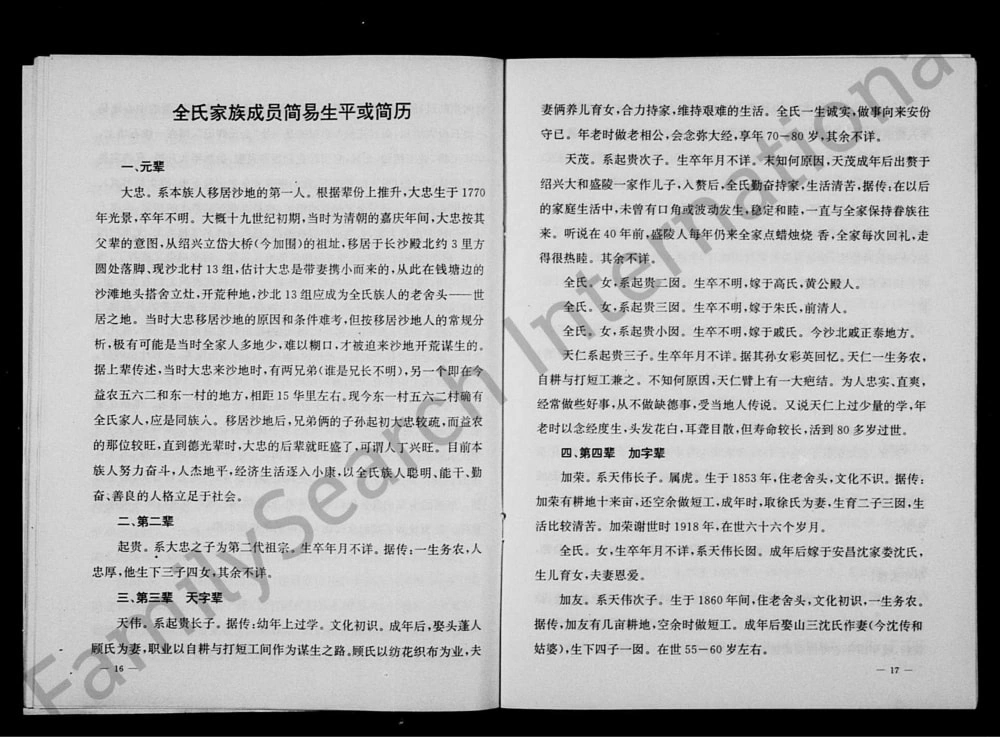 全氏家族成员简易生平或简历
一、元辈
大忠。系本族人移居沙地的第一人。根据辈份上推升，大忠生于1770
年光景，卒年不明。大概十九世纪初期，当时为清朝的嘉庆年间，大忠按其
父辈的意图，从绍兴立岱大桥（今加围）的祖址，移居于长沙殿北约3里方
圆处落脚、现沙北村13组，估计大忠是带妻携小而来的，从此在钱塘边的
沙滩地头搭舍立灶，开荒种地，沙北13组应成为全氏族人的老舍头——世
居之地。当时大忠移居沙地的原因和条件难考，但按移居沙地人的常规分
析，极有可能是当时全家人多地少，难以糊口，才被迫来沙地开荒谋生的。
据上辈传述，当时大忠来沙地时，有两兄弟（谁是兄长不明），另一个即在今
益农五六二和东一村的地方，相距15华里左右。现今东一村五六二村确有
全氏家人，应是同族人。移居沙地后，兄弟俩的子孙起初大忠较疏，而益农
的那位较旺，直到德光辈时，大忠的后辈就旺盛了，可谓人丁兴旺。目前本
族人努力奋斗，人杰地平，经济生活逐入小康，以全氏族人聪明、能干、勤
奋、善良的人格立足于社会。
二、第二辈
起贵。系大忠之子为第二代祖宗。生卒年月不详。据传：一生务农，人
忠厚，他生下三子四女，其余不详。
三、第三辈　天字辈
天伟。系起贵长子。据传：幼年上过学。文化初识。成年后，娶头蓬人
顾氏为妻，职业以自耕与打短工间作为谋生之路。顾氏以纺花织布为业，夫
— 16
妻俩养儿育女，合力持家，维持艰难的生活。全氏一生诚实，做事向来安份
守已。年老时做老相公，会念弥大经，享年70—80岁，其余不详。
天茂。系起贵次子。生卒年月不详。未知何原因，天茂成年后出赘于
绍兴大和盛陵一家作儿子，入赘后，全氏勤奋持家，生活清苦，据传：在以后
的家庭生活中，未曾有口角或波动发生，稳定和睦，一直与全家保持眷族往
来。听说在40年前，盛陵人每年仍来全家点蜡烛烧 香，全家每次回礼，走
得很热睦。其余不详。
全氏。女，系起贵二囡。生卒不明，嫁于高氏，黄公殿人。
全氏。女，系起贵三囡。生卒不明，嫁于朱氏，前清人。
全氏。女，系起贵小囡。生卒不明，嫁于戚氏。今沙北戚正泰地方。
天仁系起贵三子。生卒年月不详。据其孙女彩英回忆。天仁一生务农，
自耕与打短工兼之。不知何原因，天仁臂上有一大疤结。为人忠实、直爽，
经常做些好事，从不做缺德事，受当地人传说。又说天仁上过少量的学，年
老时以念经度生，头发花白，耳聋目散，但寿命较长，活到80多岁过世。
四、第四辈　加字辈
加荣。系天伟长子。属虎。生于1853年，住老舍头，文化不识。据传：
加荣有耕地十来亩，还空余做短工，成年时，取徐氏为妻，生育二子三囡，生
活比较清苦。加荣谢世时1918年，在世六十六个岁月。
全氏。女，生卒年月不详，系天伟长囡。成年后嫁于安昌沈家娄沈氏，
生儿育女，夫妻恩爱。
加友。系天伟次子。生于1860年间，住老舍头，文化初识，一生务农。
据传，加友有几亩耕地，空余时做短工。成年后娶山三沈氏作妻（今沈传和
姑婆），生下四子一囡。在世55—60岁左右。
— 17 —
FamilySearch International